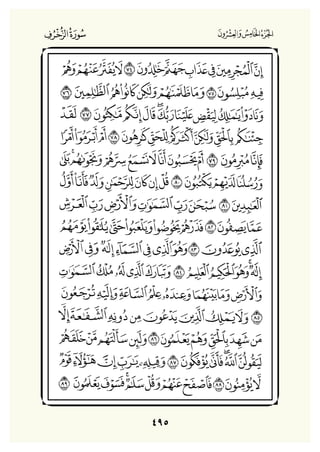 الجزء الخامس والعشرون سورة الزخرف
إن المجرمين في عذاب جهنم خالدون ٧٤ لا يفتر عنهم وهم
فيه مبلسون ٧٥ وما ظلمناهم ولكن كانوا هم الظالمين ٧٦
ونادوا يا مالك ليقض علينا ربك قال إنكم ماكثون ٧٧ لقد
جئناكم بالحق ولكن أكثركم للحق كارهون ٧٨ أم أبرموا أمرا
فإنا مبرمون ٧٩ أم يحسبون أنا لا نسمع سرهم ونجواهم بلى
ورسلنا لديهم يكتبون ٨٠ قل إن كان للرحمن ولد فأنا أول
العابدين ٨١ سبحان رب السماوات والأرض رب العرش
عما يصفون ٨٢ فذرهم يخوضوا ويلعبوا حتى يلاقوا يومهم
الذي يوعدون ٨٣ وهو الذي في السماء إله وفي الأرض
إله وهو الحكيم العليم ٨٤ وتبارك الذي له ملك السماوات
والأرض وما بينهما وعنده علم الساعة وإليه ترجعون
٨٥ ولا يملك الذين يدعون من دونه الشفاعة إلا
من شهد بالحق وهم يعلمون ٨٦ ولئن سألتهم من خلقهم
ليقولن الله فأنى يؤفكون ٨٧ وقيله يا رب إن هؤلاء قوم
لا يؤمنون ٨٨ فاصفح عنهم وقل سلام فسوف يعلمون ٨٩
٤٩٥